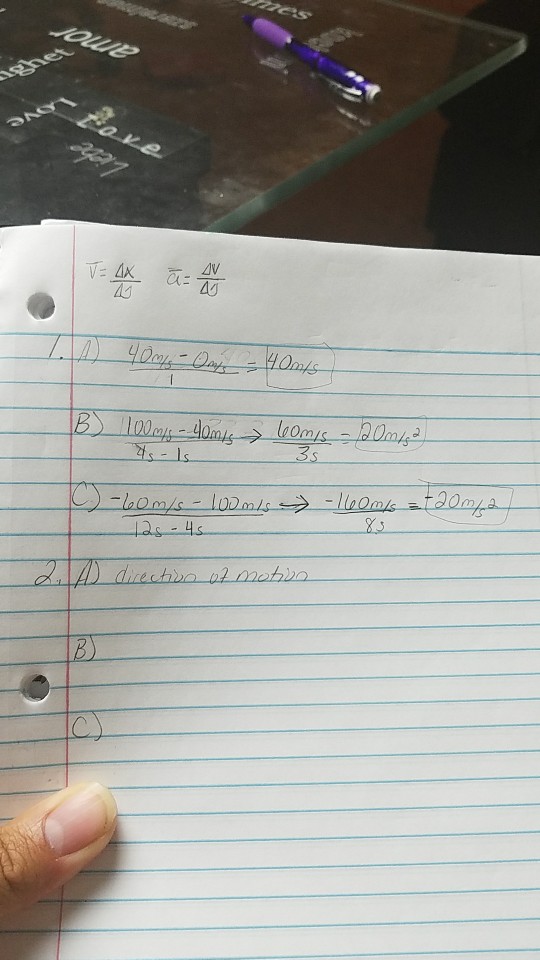 imes
amor
ghet
Love
Love
Liebe
V̅ = ΔX/ΔJ a̅ = ΔV/ΔJ
1. A) 40m/s - 0m/s / 1 = 40m/s
B) 100m/s - 40m/s / 4s - 1s → 60m/s / 3s = 20m/s²
C) -60m/s - 100m/s / 12s - 4s → -160m/s / 8s = -20m/s²
2. A) direction of motion
B)
C)